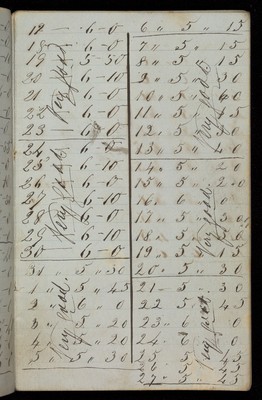 18 6-0
19 5-50
20 6-10
21 6-0
22 6-0
23 6-0
Very good
24
25 6-10
26 6-0
27 6-10
28 6-0
29 6-10
30 6-0
Very good
31 5 " 30
1 " 5 " 45
2 " 6 " 0
3 " 5 " 20
4 " 5 " 20
5 " 5 " 30
Very good
6 " 5 " 15
7 " 5 " 15
8 " 5 15
9 " 5 " 30
10 " 5
11 " 5
12 " 5
13 " 5
Very good
14 " 5 " 20
15 " 5
16 " 6
17 " 5
18 " 5
19 " 5 15
Very good
20 " 5 " 30
21 - 5 " 30
22 5 " 45
23 " 6 " 0
24 " 6 0
25 5 45
26 5 45
27 " 5 " 45
Very good